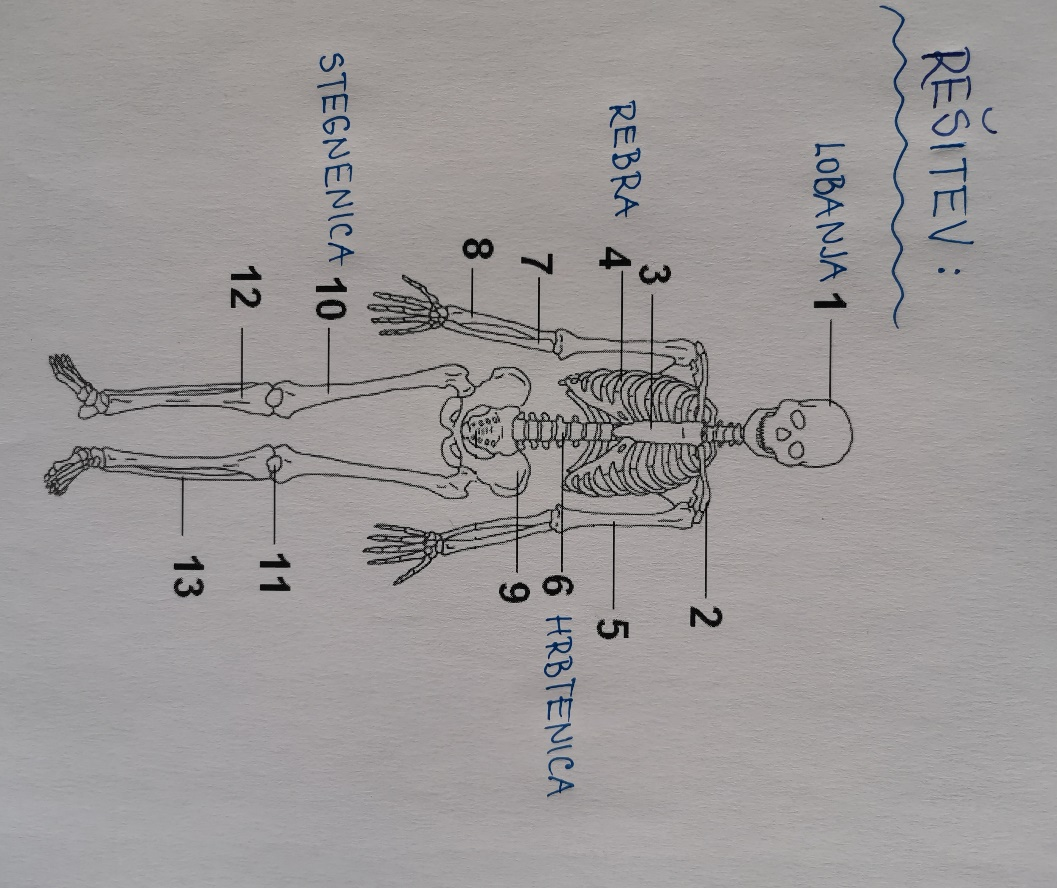 REŠITEV:
LOBANJA 1
2
3
REBRA 4
5
6 HRBTENICA
7
8
9
STEGNENICA 10
11
12
13